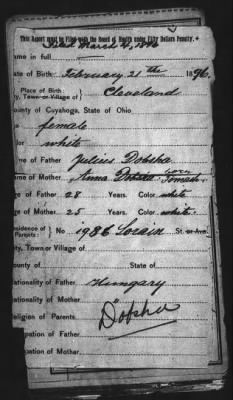 This Report must be Filed with the Board of Health under Fifty Dollars Penalty.
Filed March 4, 1896
ame in full
ate of Birth: February 21st 1896.
Place of Birth: Cleveland
y, Town or Village of
County of Cuyahoga, State of Ohio.
female
olor white
ame of Father Julius Dobsha
ame of Mother, Anna Dobsha born Tomash
ge of Father 28 Years. Color white
ge of Mother 25 Years. white
Residence of Parents: No 1986 Lorain St. or Ave.
ity, Town or Village of
ounty of State of
ationality of Father Hungary
ationality of Mother
eligion of Parents Dobsha
ccupation of Father
ccupation of Mother